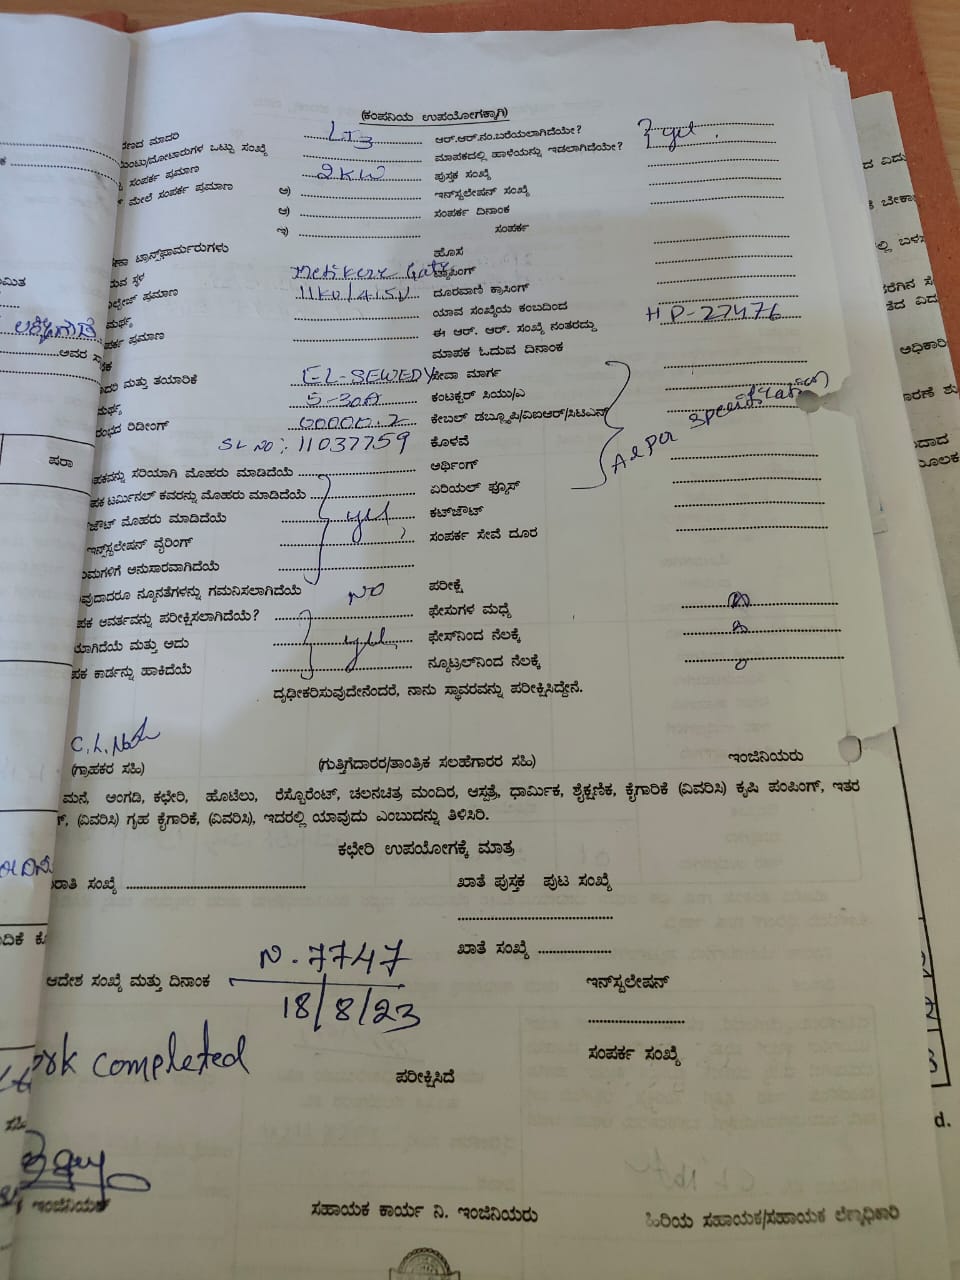 (ಕಂಪನಿಯ ಉಪಯೋಗಕ್ಕಾಗಿ)
ಮಾದರಿ LT3 ಆರ್.ಆರ್.ನಂ.ಬರೆಯಲಾಗಿದೆಯೇ? yes.
ಒಟ್ಟು ಸಂಖ್ಯೆ ಮಾಪಕದಲ್ಲಿ ಹಾಳೆಯನ್ನು ಇಡಲಾಗಿದೆಯೇ?
ಸಂಪರ್ಕ ಪ್ರಮಾಣ 2KW ಪುಸ್ತಕ ಸಂಖ್ಯೆ
ಮೇಲೆ ಸಂಪರ್ಕ ಪ್ರಮಾಣ ಅ) ಇನ್‌ಸ್ಟಲೇಷನ್ ಸಂಖ್ಯೆ
ಆ) ಸಂಪರ್ಕ ದಿನಾಂಕ
ಇ) ಸಂಪರ್ಕ
ಟ್ರಾನ್ಸ್‌ಫಾರ್ಮರುಗಳು ಹೊಸ
ಸ್ಥಳ Metikere Gate ಟ್ಯಾಪಿಂಗ್
ಪ್ರಮಾಣ 11KV/415V ದೂರವಾಣಿ ಕ್ರಾಸಿಂಗ್
ಯಾವ ಸಂಖ್ಯೆಯ ಕಂಬದಿಂದ
ಪ್ರಮಾಣ ಈ ಆರ್. ಆರ್. ಸಂಖ್ಯೆ ನಂತರದ್ದು HP-27476
ಮಾಪಕ ಓದುವ ದಿನಾಂಕ
ಮತ್ತು ತಯಾರಿಕೆ EL-SEWEDY ಸೇವಾ ಮಾರ್ಗ
5-30A ಕಂಟಕ್ಟರ್ ಸಿಯು/ಎ
ರಿಡೀಂಗ್ 00000.2 ಕೇಬಲ್ ಡಬ್ಲ್ಯೂಪಿ/ವಿಐಆರ್/ಸಿಟಿಎಸ್ As per specification
SL NO: 11037759 ಕೊಳವೆ
ಸರಿಯಾಗಿ ಮೊಹರು ಮಾಡಿದೆಯೆ ಅರ್ಥಿಂಗ್
ಟರ್ಮಿನಲ್ ಕವರನ್ನು ಮೊಹರು ಮಾಡಿದೆಯೆ ಏರಿಯಲ್ ಫ್ಯೂಸ್
ಮೊಹರು ಮಾಡಿದೆಯೆ yes ಕಟ್‌ಔಟ್
ಇನ್ಸ್‌ಟಲೇಷನ್ ವೈರಿಂಗ್ ಸಂಪರ್ಕ ಸೇವೆ ದೂರ
ಅನುಸಾರವಾಗಿದೆಯೆ
ನ್ಯೂನತೆಗಳನ್ನು ಗಮನಿಸಲಾಗಿದೆಯೆ NO ಪರೀಕ್ಷೆ
ಆವರ್ತವನ್ನು ಪರೀಕ್ಷಿಸಲಾಗಿದೆಯೆ? ಫೇಸುಗಳ ಮಧ್ಯೆ
ಮತ್ತು ಅದು yes ಫೇಸ್‌ನಿಂದ ನೆಲಕ್ಕೆ
ಕಾರ್ಡನ್ನು ಹಾಕಿದೆಯೆ ನ್ಯೂಟ್ರಲ್‌ನಿಂದ ನೆಲಕ್ಕೆ
ದೃಢೀಕರಿಸುವುದೇನೆಂದರೆ, ನಾನು ಸ್ಥಾವರವನ್ನು ಪರೀಕ್ಷಿಸಿದ್ದೇನೆ.
(ಗ್ರಾಹಕರ ಸಹಿ) (ಗುತ್ತಿಗೆದಾರರ/ತಾಂತ್ರಿಕ ಸಲಹೆಗಾರರ ಸಹಿ) ಇಂಜಿನಿಯರು
ಮನೆ, ಅಂಗಡಿ, ಕಛೇರಿ, ಹೊಟೆಲು, ರೆಸ್ಟೋರೆಂಟ್, ಚಲನಚಿತ್ರ ಮಂದಿರ, ಆಸ್ಪತ್ರೆ, ಧಾರ್ಮಿಕ, ಶೈಕ್ಷಣಿಕ, ಕೈಗಾರಿಕೆ (ವಿವರಿಸಿ) ಕೃಷಿ ಪಂಪಿಂಗ್, ಇತರ
(ವಿವರಿಸಿ) ಗೃಹ ಕೈಗಾರಿಕೆ, (ವಿವರಿಸಿ), ಇದರಲ್ಲಿ ಯಾವುದು ಎಂಬುದನ್ನು ತಿಳಿಸಿರಿ.
ಕಛೇರಿ ಉಪಯೋಗಕ್ಕೆ ಮಾತ್ರ
ಸಂಖ್ಯೆ ಖಾತೆ ಪುಸ್ತಕ ಪುಟ ಸಂಖ್ಯೆ
ಖಾತೆ ಸಂಖ್ಯೆ
ಆದೇಶ ಸಂಖ್ಯೆ ಮತ್ತು ದಿನಾಂಕ N.7747 ಇನ್‌ಸ್ಟಲೇಷನ್
18/8/23
ಸಂಪರ್ಕ ಸಂಖ್ಯೆ
completed
ಪರೀಕ್ಷಿಸಿದೆ
ಇಂಜಿನಿಯರ್ ಸಹಾಯಕ ಕಾರ್ಯ ನಿ. ಇಂಜಿನಿಯರು ಹಿರಿಯ ಸಹಾಯಕ/ಸಹಾಯಕ ಲೆಕ್ಕಾಧಿಕಾರಿ